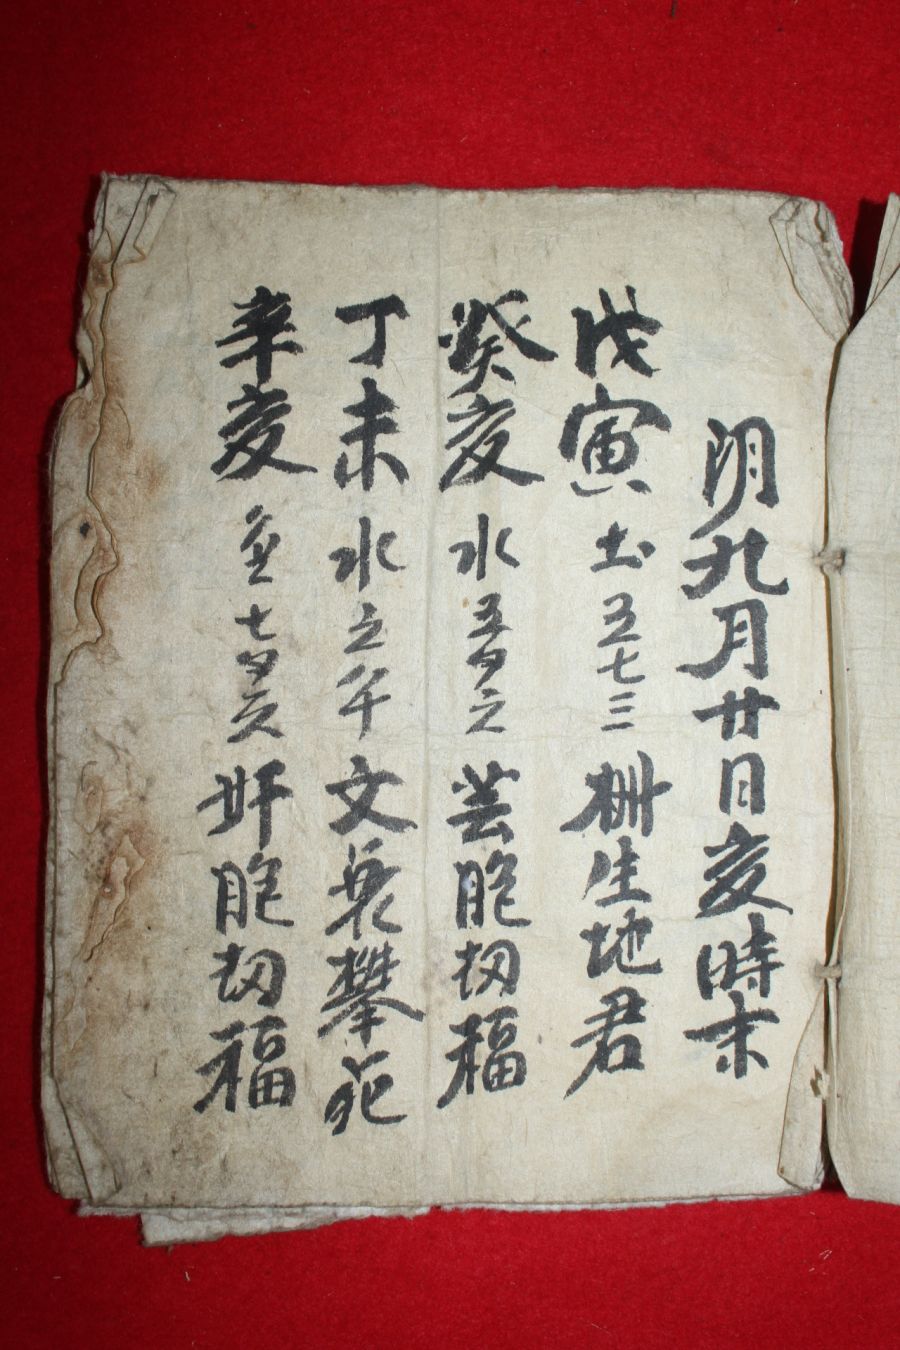 阴九月廿日亥時末
戊寅 土 五七三 柵生地君
癸亥 水 五夕之 芸胞切福
丁未 水 之午 文衰攀花
辛亥 金 七夕六 奸胞切福